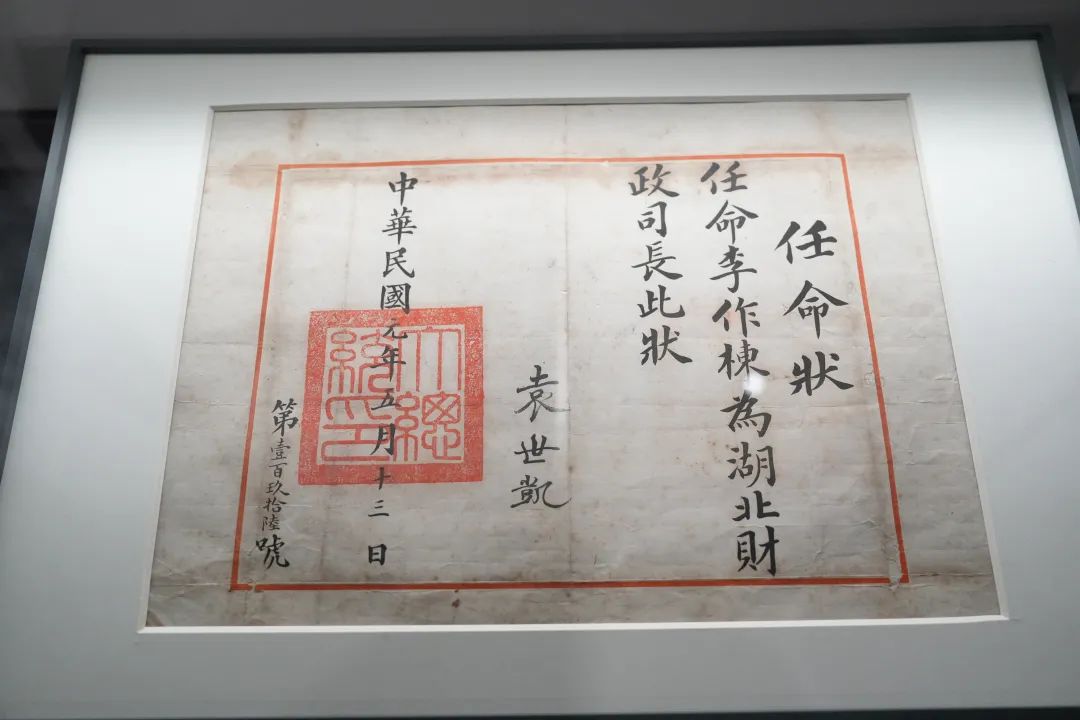 任命狀
任命李作棟為湖北財
政司長此狀
袁世凱
中華民國元年五月十三日
大總統印
第壹百玖拾陸號